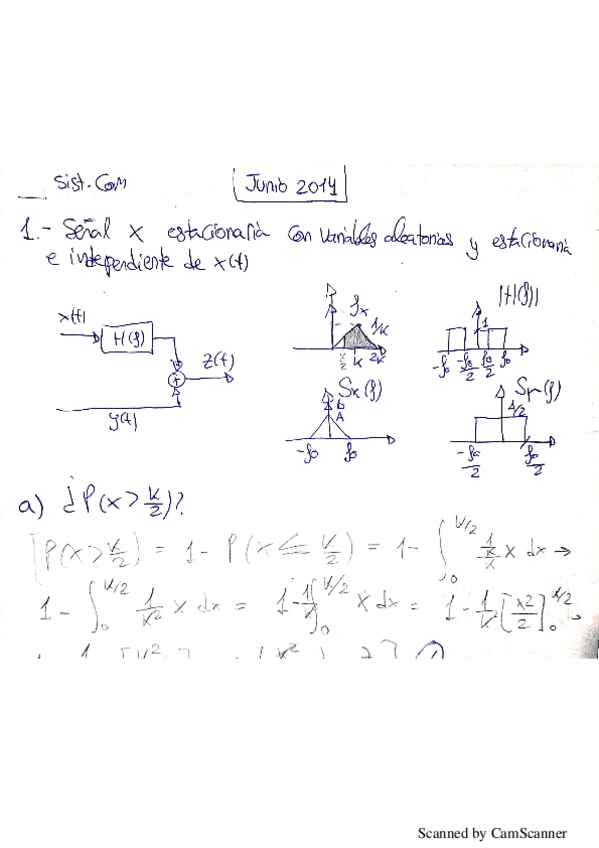 Sist. Com
Junio 2014
1.- Señal x estacionaria con variables aleatorias y estacionaria
e independiente de x(t)
x(t)
H(f)
z(t)
+
y(t)
fx
1/K
K/2 K 2K
|H(f)|
1
-fo -fo/2 fo/2 fo
Sx(f)
b
A
-fo fo
Sy(f)
A/2
-fo/2 fo/2
a) ¿P(x > K/2)?
P(x > K/2) = 1 - P(x ≤ K/2) = 1 - ∫₀^{K/2} (1/K)/K x dx →
1 - ∫₀^{K/2} 1/K² x dx = 1 - 1/K ∫₀^{K/2} x dx = 1 - 1/K [x²/2]₀^{K/2}
Scanned by CamScanner